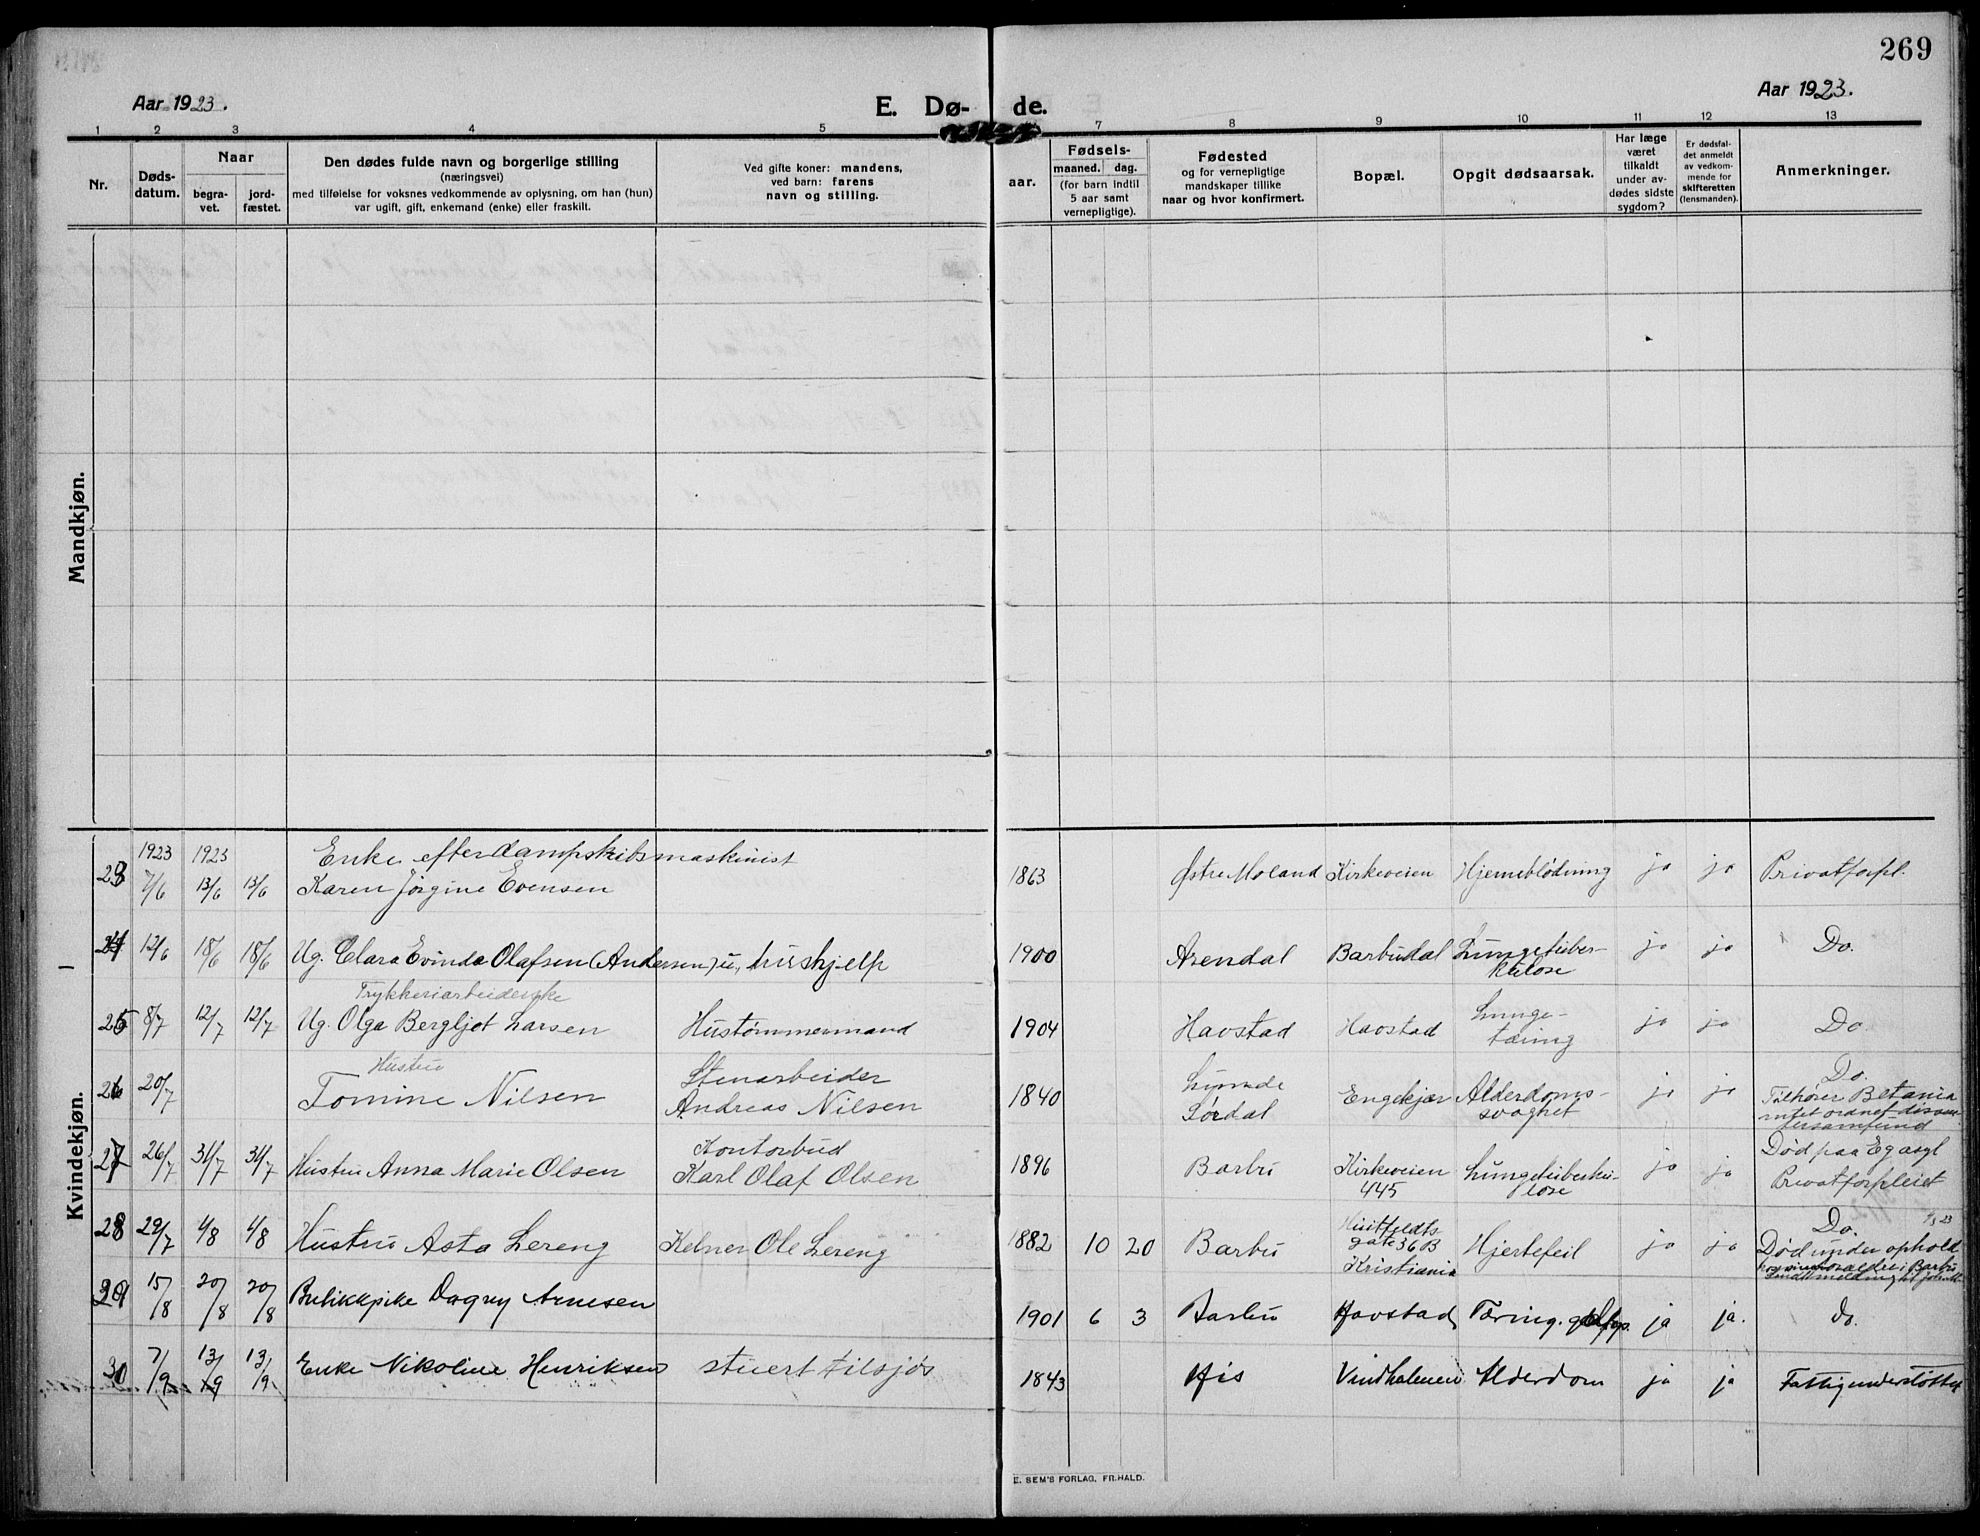 269
Aar 1923.
E. Dø- de.
Aar 1923.
1 2 3 4 5 7 8 9 10 11 12 13
Nr.
Døds-
datum.
Naar
begra-
vet.
jord-
fæstet.
Den dødes fulde navn og borgerlige stilling
(næringsvei)
med tilføielse for voksnes vedkommende av oplysning, om han (hun)
var ugift, gift, enkemand (enke) eller fraskilt.
Ved gifte koner: mandens,
ved barn: farens
navn og stilling.
aar.
Fødsels-
maaned. dag.
(for barn indtil
5 aar samt
vernepligtige).
Fødested
og for vernepligtige
mandskaper tillike
naar og hvor konfirmert.
Bopæl.
Opgit dødsaarsak.
Har læge
været
tilkaldt
under av-
dødes sidste
sygdom?
Er dødsfal-
det anmeldt
av vedkom-
mende for
skifteretten
(lensmanden).
Anmerkninger.
Mandkjøn.
Kvindekjøn.
1923 1923 Enke efter dampskibsmaskinist
23 7/6 13/6 13/6 Karen Jørgine Evensen 1863 Østre Moland Kirkeveien Hjerneblødning ja ja Privatforpl.
24 12/6 18/6 18/6 Ug. Clara Evinda Olafsen (Andersen) u, hushjelp 1900 Arendal Barbudal Lungetuber-
kulose ja ja Do.
Trykkeriarbeiderske
25 8/7 12/7 12/7 Ug. Olga Bergljot Larsen Hustømmermand 1904 Havstad Havstad Lunge-
tæring ja ja Do
Hustru
26 20/7 Tomine Nilsen Stenarbeider
Andreas Nilsen 1840 Engekjær Alderdoms-
svaghet ja ja Do.
Tilhører Betania
27 26/7 31/7 31/7 Hustru Anna Marie Olsen Kontorbud
Karl Olaf Olsen 1896 Barbu Kirkeveien
445 Lungetuberku-
lose ja ja Død paa Eg asyl
Privatforpleiet
28 29/7 4/8 4/8 Hustru Asta Lereng Kelner Ole Lereng 1882 10 20 Barbu Huitfeldts
gate 36 B
Kristiania Hjertefeil ja ja Do.
Død under ophold
29 15/8 20/8 20/8 Butikkpike Dagny Arnesen 1901 6 3 Barbu Havstad Tæring. ja ja. do.
30 7/9 13/9 13/9 Enke Nikoline Henriksen stuert tilsjøs 1843 His Vindholmen Alderdom ja ja Fattigunderstøttet
E. SEM'S FORLAG, FR.HALD.